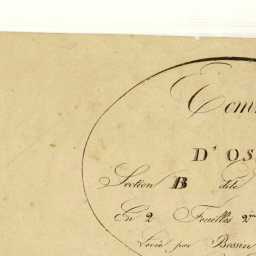 Com
D' OS
Section B dite
En 2 Feuilles 2me
Levée par Bossin